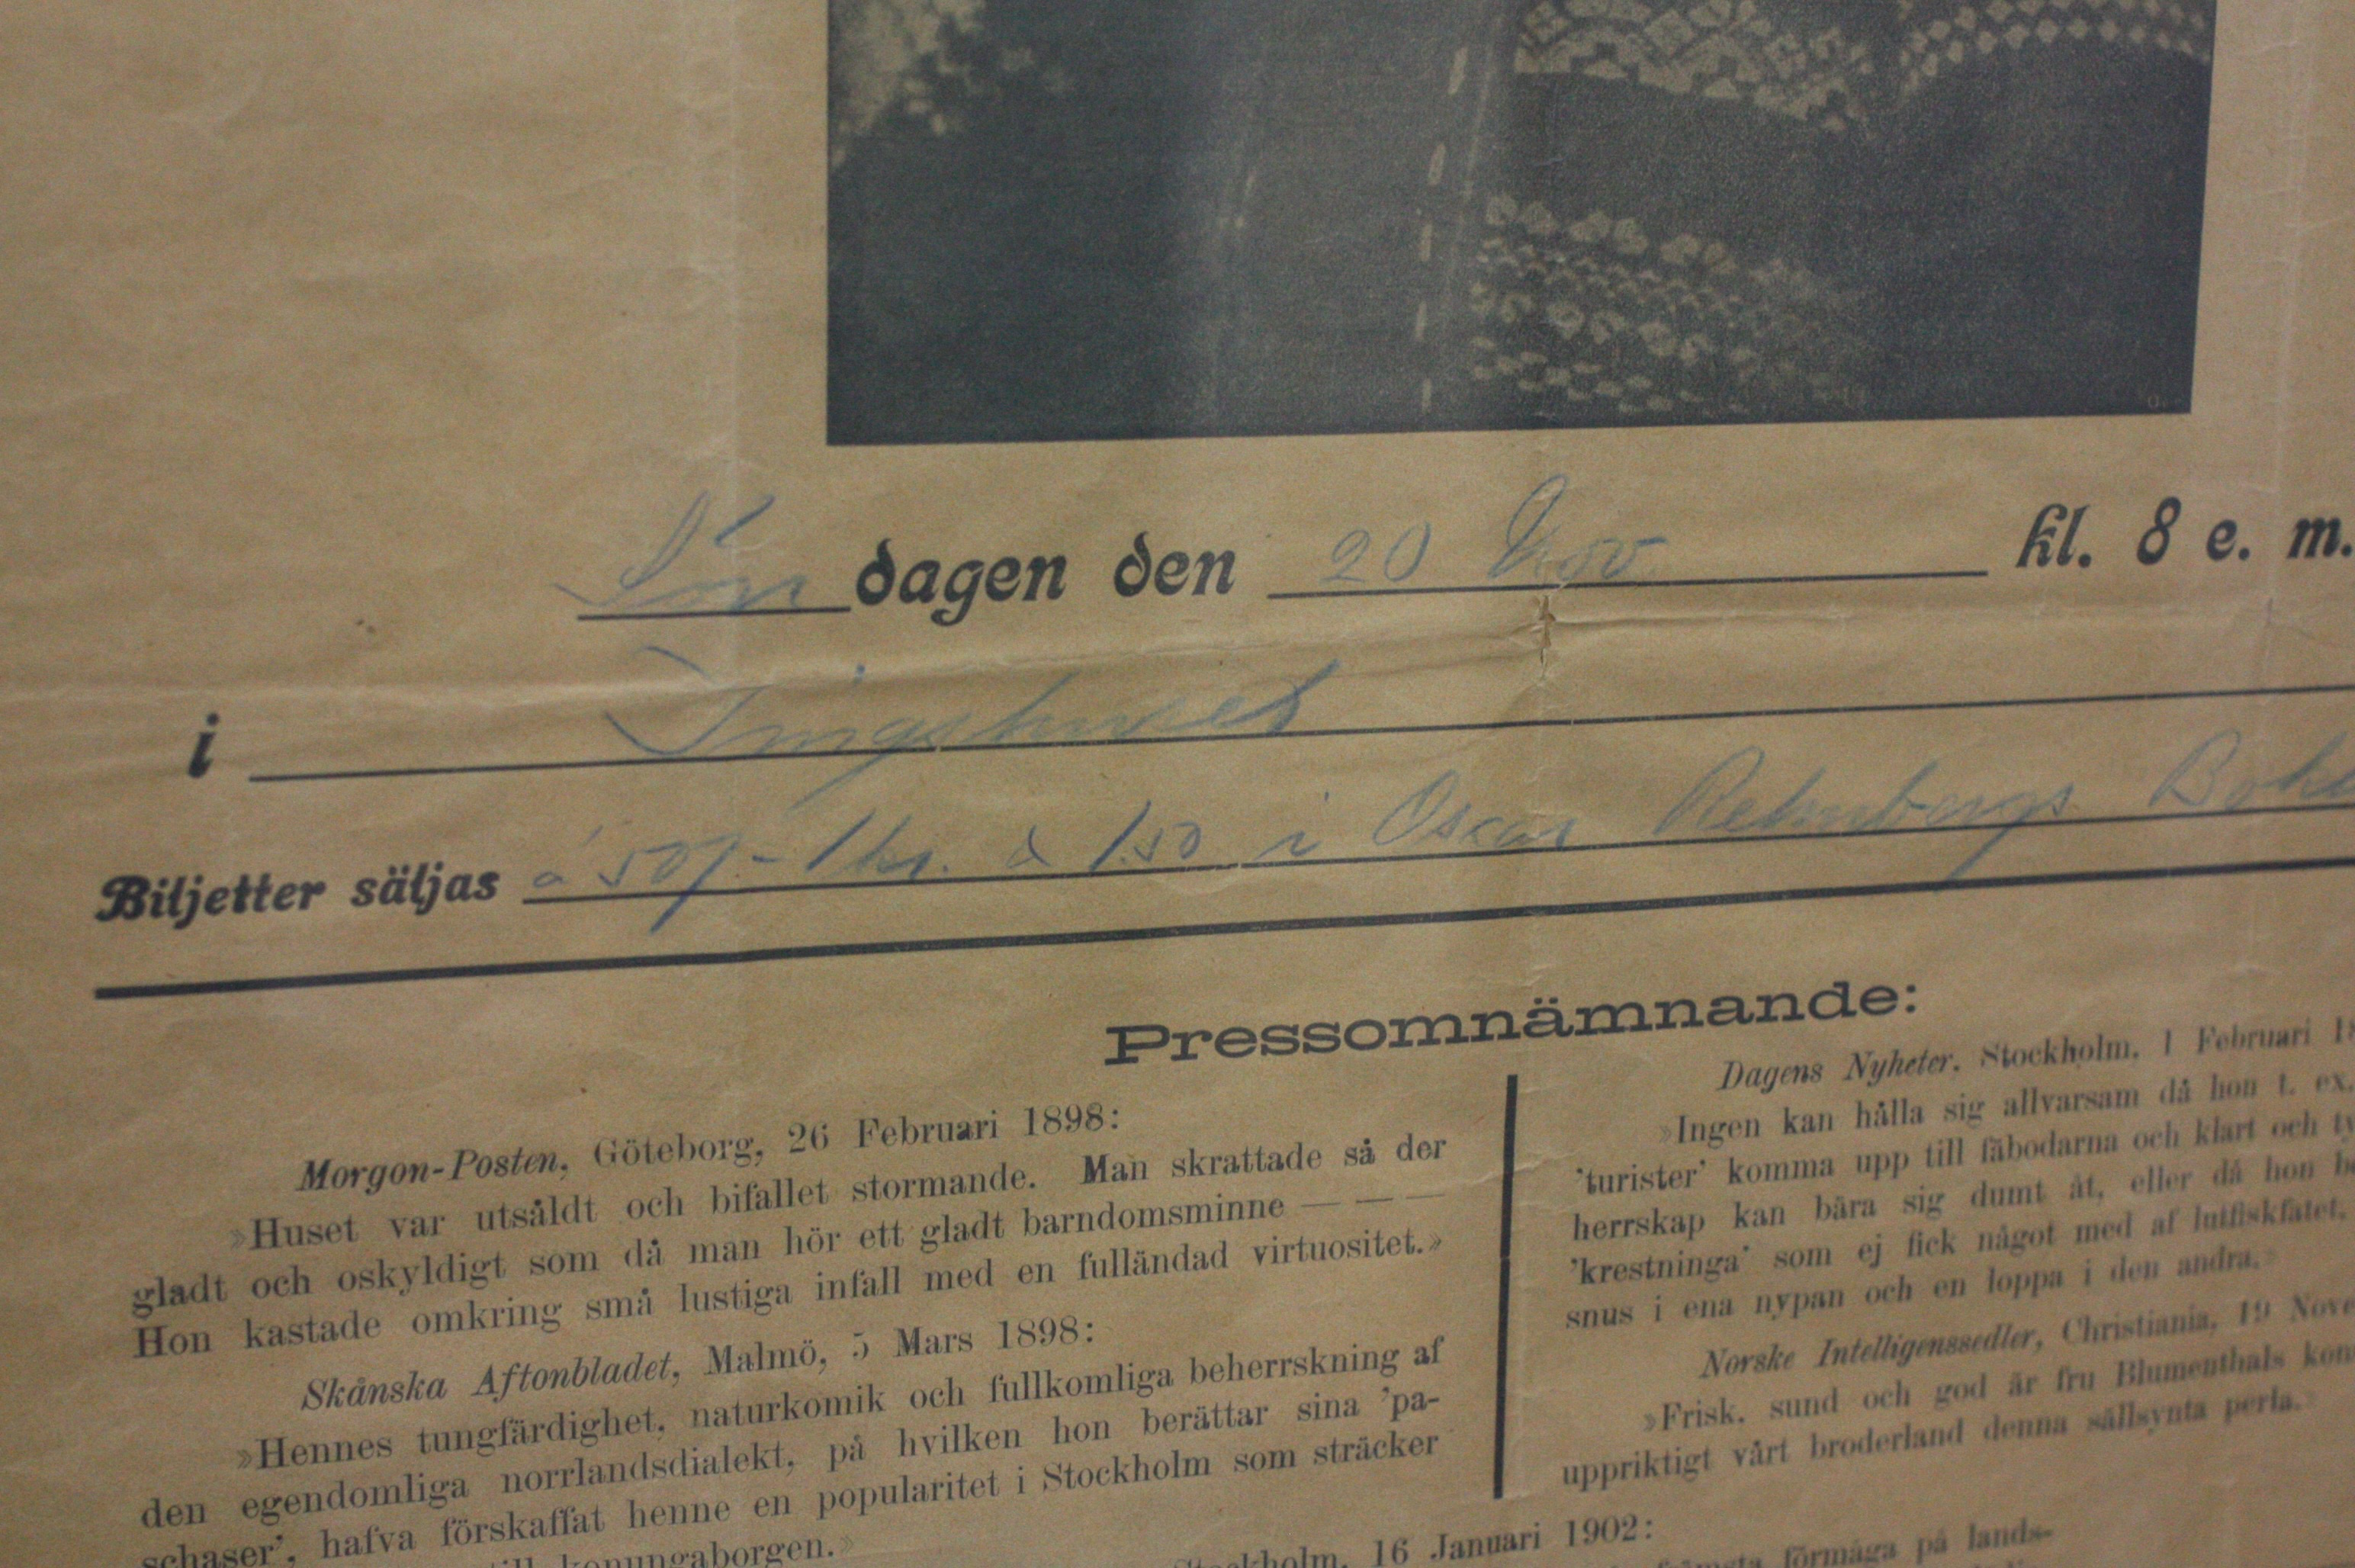 Sön dagen den 20 Nov. kl. 8 e. m.
i Tingshuset
Biljetter säljas à 50/- 1 kr. & 1.50 i Oskar
Pressomnämnande:
Morgon-Posten, Göteborg, 26 Februari 1898:
»Huset var utsåldt och bifallet stormande. Man skrattade så der
gladt och oskyldigt som då man hör ett gladt barndomsminne — — —
Hon kastade omkring små lustiga infall med en fulländad virtuositet.»
Skånska Aftonbladet, Malmö, 5 Mars 1898:
»Hennes tungfärdighet, naturkomik och fullkomliga beherrskning af
den egendomliga norrlandsdialekt, på hvilken hon berättar sina 'pa-
schaser', hafva förskaffat henne en popularitet i Stockholm som sträcker
till konungaborgen.»
Dagens Nyheter, Stockholm, 1 Februari
»Ingen kan hålla sig allvarsam då hon t. ex.
'turister' komma upp till fäbodarna och klart och
herrskap kan bära sig dumt åt, eller då hon
'krestninga' som ej fick något med af lutfiskfatet,
snus i ena nypan och en loppa i den andra.»
Norske Intelligenssedler, Christiania, 19
»Frisk, sund och god är fru Blumenthals
uppriktigt vårt broderland denna sällsynta perla.»
Stockholm, 16 Januari 1902:
förmåga på lands-